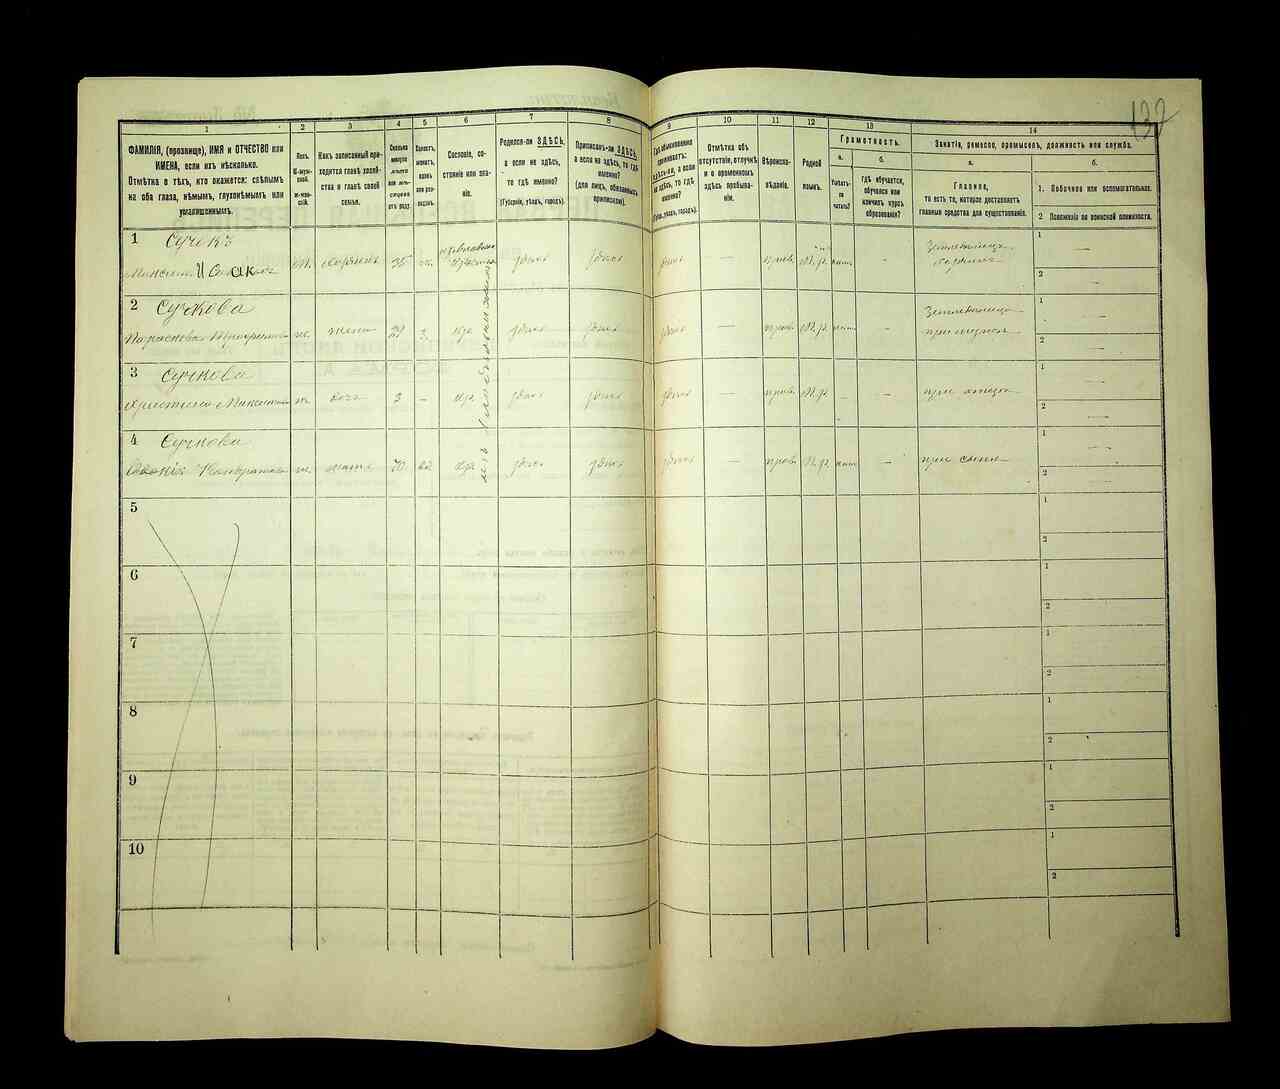 132
1 2 3 4 5 6 7 8 9 10 11 12 13 14
ФАМИЛІЯ, (прозвище), ИМЯ и ОТЧЕСТВО или
ИМЕНА, если ихъ нѣсколько.
Отмѣтка о тѣхъ, кто окажется: слѣпымъ
на оба глаза, нѣмымъ, глухонѣмымъ или
умалишеннымъ.
Полъ.
М-муж-
ской.
Ж-жен-
скій.
Какъ записанный при-
ходится главѣ хозяй-
ства и главѣ своей
семьи.
Сколько
минуло
лѣтъ
или мѣс-
яцевъ
отъ роду.
Сословіе, со-
стояніе или зва-
ніе.
Родился-ли ЗДѢСЬ,
а если не здѣсь,
то гдѣ именно?
(Губернія, уѣздъ, городъ).
Приписанъ-ли ЗДѢСЬ,
а если не здѣсь, то гдѣ
именно?
(для лицъ, обязанныхъ
припискою).
Гдѣ обыкновенно
проживаетъ:
здѣсь-ли, а если
не здѣсь, то гдѣ
именно?
(Губ., уѣздъ, городъ).
Отмѣтка объ
отсутствіи, отлучкѣ
и о временномъ
здѣсь пребыва-
ніи.
Вѣроиспо-
вѣданіе.
Родной
языкъ.
Грамотность.
а.
Умѣетъ-
ли
читать?
б.
гдѣ обучается,
обучался или
кончилъ курсъ
образованія?
Занятія, ремесло, промыселъ, должность или служба.
а.
Главное,
то есть то, которое доставляетъ
главныя средства для существованія.
б.
1. Побочное или вспомогательное.
2 Положеніе по воинской повинности.
1 Сучокъ
Максимъ Исаак
м. хозяинъ 35 здѣсь здѣсь здѣсь — прав. М.р. —
Земледѣлецъ
хозяинъ
1 —
2 —
2 Сучкова
ж. жена кр. здѣсь здѣсь здѣсь — прав. М.р. —
Земледѣлецъ
при мужѣ
1 —
2 —
3 Сучкова
дочь 3 — кр. здѣсь здѣсь здѣсь — прав. М.р. — —
при отцѣ
1 —
2 —
4 Сучкова
ж. мать 70 кр. здѣсь здѣсь здѣсь — прав. М.р. —
при сынѣ
1 —
2 —
5
1
2
6
1
2
7
1
2
8
1
2
9
1
2
10
1
2